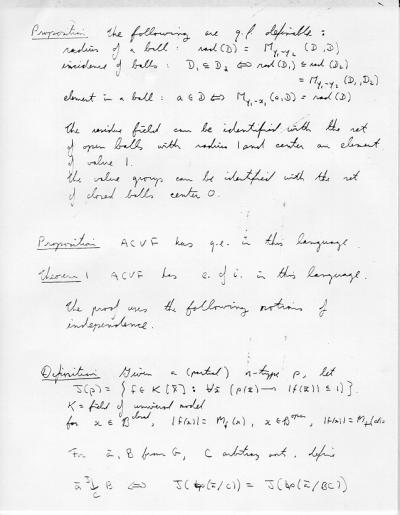 Proposition The following are q.f. definable :
radius of a ball : rad(D) = M_{y₁-y₂} (D,D)
incidence of balls : D₁ ⊆ D₂ ⇔ rad(D₁) ≤ rad(D₂)
= M_{y₁-y₂} (D₁,D₂)
element in a ball : a ∈ D ⇔ M_{y₁-x₁} (a,D) = rad(D)
The residue field can be identified with the set
of open balls with radius 1 and center an element
of value 1.
The value group can be identified with the set
of closed balls, center 0.
Proposition ACVF has q.e. in this language.
Theorem 1 ACVF has e. of i. in this language.
The proof uses the following notions of
independence.
Definition Given a (partial) n-type p, let
J(p) = { f ∈ K[x̄] : ∀x̄ (p(x̄) → |f(x̄)| ≤ 1) }.
K = field of universal model
for x ∈ B^{closed}, |f(x)| = M_f(x), x ∈ B^{open}, |f(x)| = M_f
For ā, B from G, C arbitrary, define
ā ⫝^J_C B ⇔ J(tp(ā/C)) = J(tp(ā/BC))